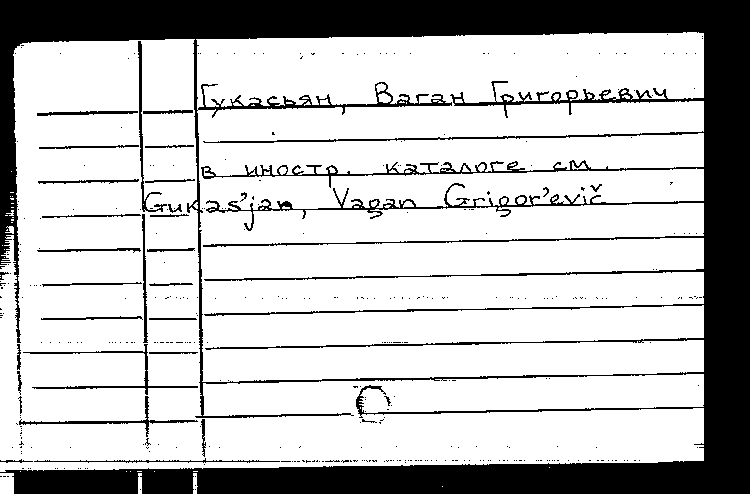 Гукасьян, Ваган Григорьевич
в иностр. каталоге см.
Gukas'jan, Vagan Grigor'evič